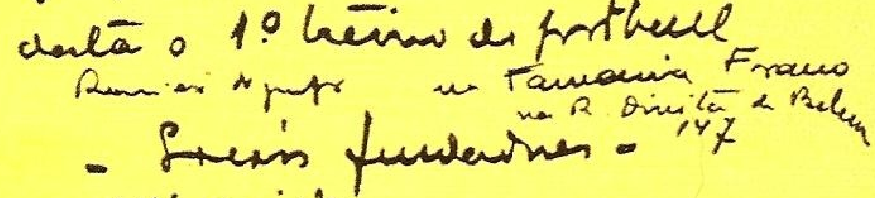 data o 1º treino de football
Reunião no na Farmácia Franco
na R. Direita de Belem
147
- Sócios fundadores -